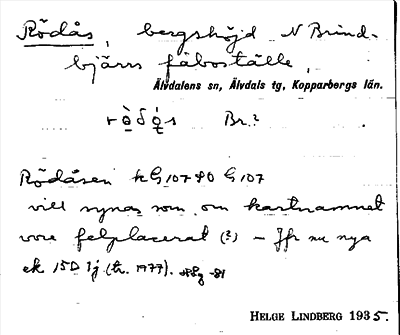 Rödås, bergshöjd N Brind-
bjärs fäboställe,
Älvdalens sn, Älvdals tg, Kopparbergs län.
Br.?
Rödåsen kG 107 SO G 107
vill synas som om kartnamnet
vore felplacerat (?) – Jfr nu nya
ek 15D 1j (tr. 1977).
HELGE LINDBERG 1935.